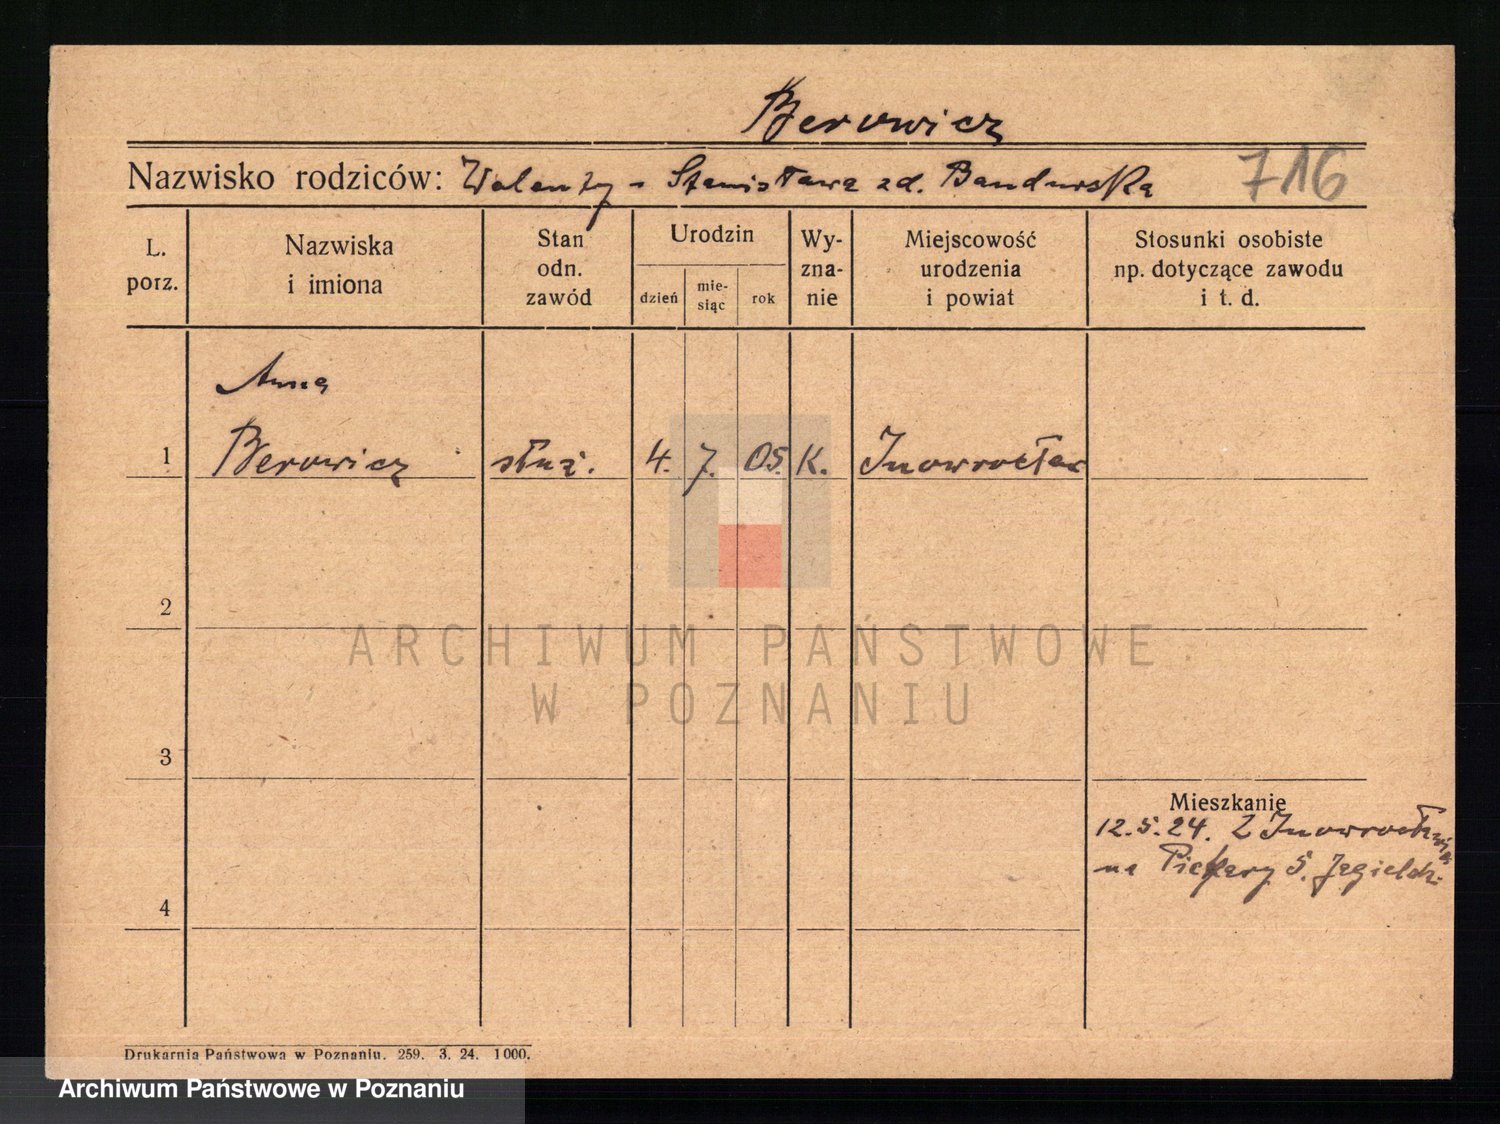 Berowicz
Nazwisko rodziców: Walenty - Stanisława zd. Bandurska
716
L. porz.
Nazwiska i imiona
Stan odn. zawód
Urodzin
dzień
mie-siąc
rok
Wy-zna-nie
Miejscowość urodzenia i powiat
Stosunki osobiste np. dotyczące zawodu i t. d.
Anna
1 Berowicz służ. 4. 7. 05. K. Inowrocław
2
ARCHIWUM PAŃSTWOWE
W POZNANIU
3
Mieszkanie
12.5.24. Z Inowrocławia
na Piekary 5.
4
Drukarnia Państwowa w Poznaniu. 259. 3. 24. 1000.
Archiwum Państwowe w Poznaniu